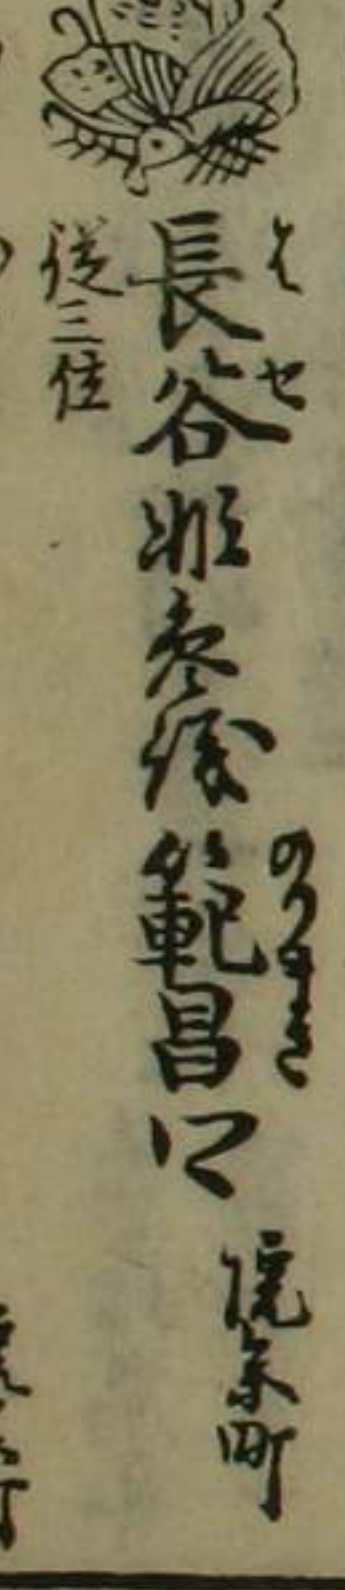 はせ
長谷非参議範昌卿
のりまさ
従三位
院参町